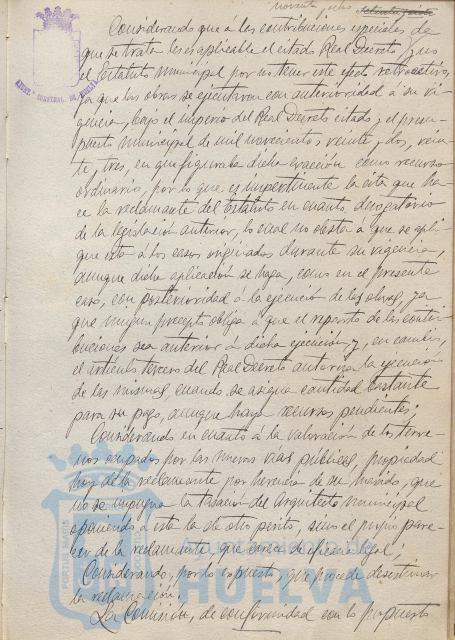 noventa y ocho setenta y siete
Considerando que á las contribuciones especiales de
que se trata les es aplicable el citado Real Decreto y no
el Estatuto Municipal por no tener este efecto retroactivo,
ya que las obras se ejecutaron con anterioridad á su vi-
gencia, bajo el imperio del Real Decreto citado y el presu-
puesto municipal de mil novecientos veinte y dos, vein-
te y tres, en que figuraba dicha exacción como recurso
ordinario, por lo que es impertinente la cita que ha-
ce la reclamante del Estatuto en cuanto derogatorio
de la legislación anterior, lo cual no obsta á que se apli-
que ésta á los casos originados durante su vigencia,
aunque dicha aplicación se haga, como en el presente
caso, con posterioridad a la ejecución de las obras, ya
que ningún precepto obliga a que el reparto de las contri-
buciones sea anterior á dicha ejecución y, en cambio,
el artículo tercero del Real Decreto autoriza la ejecución
de las mismas cuando se asigna cantidad bastante
para su pago, aunque haya recursos pendientes;
Considerando en cuanto á la valoración de los terre-
nos ocupados por las nuevas vías públicas, propiedad
hoy de la reclamante por herencia de su marido, que
no se impugna la tasación del Arquitecto Municipal
oponiendo á esta la de otro perito, sino el propio pare-
cer de la reclamante, que carece de eficacia legal;
Considerando, por lo expuesto, que procede desestimar
la reclamación;
La Comisión, de conformidad con lo propuesto
AYUNT. CONSTITUCIONAL DE HUELVA
PORTUS MARIS
Ayuntamiento de
HUELVA